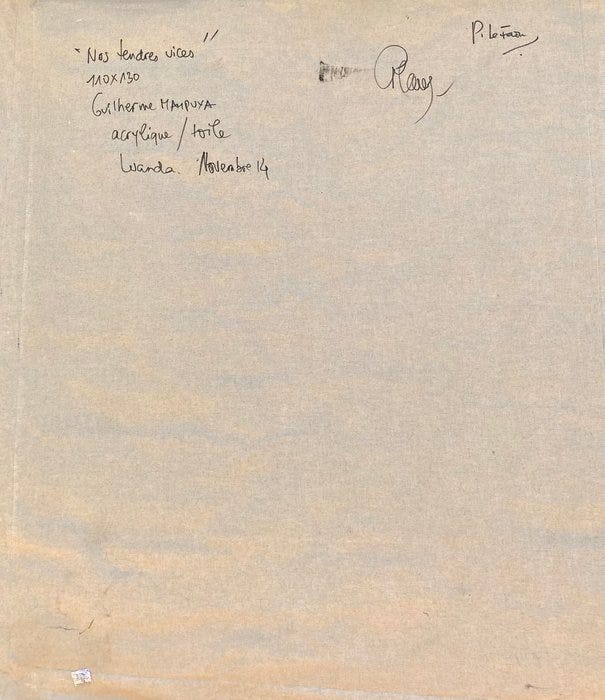 "Nos tendres vices"
110x130
Guilherme MAMPUYA
acrylique / toile
Luanda. Novembre 14